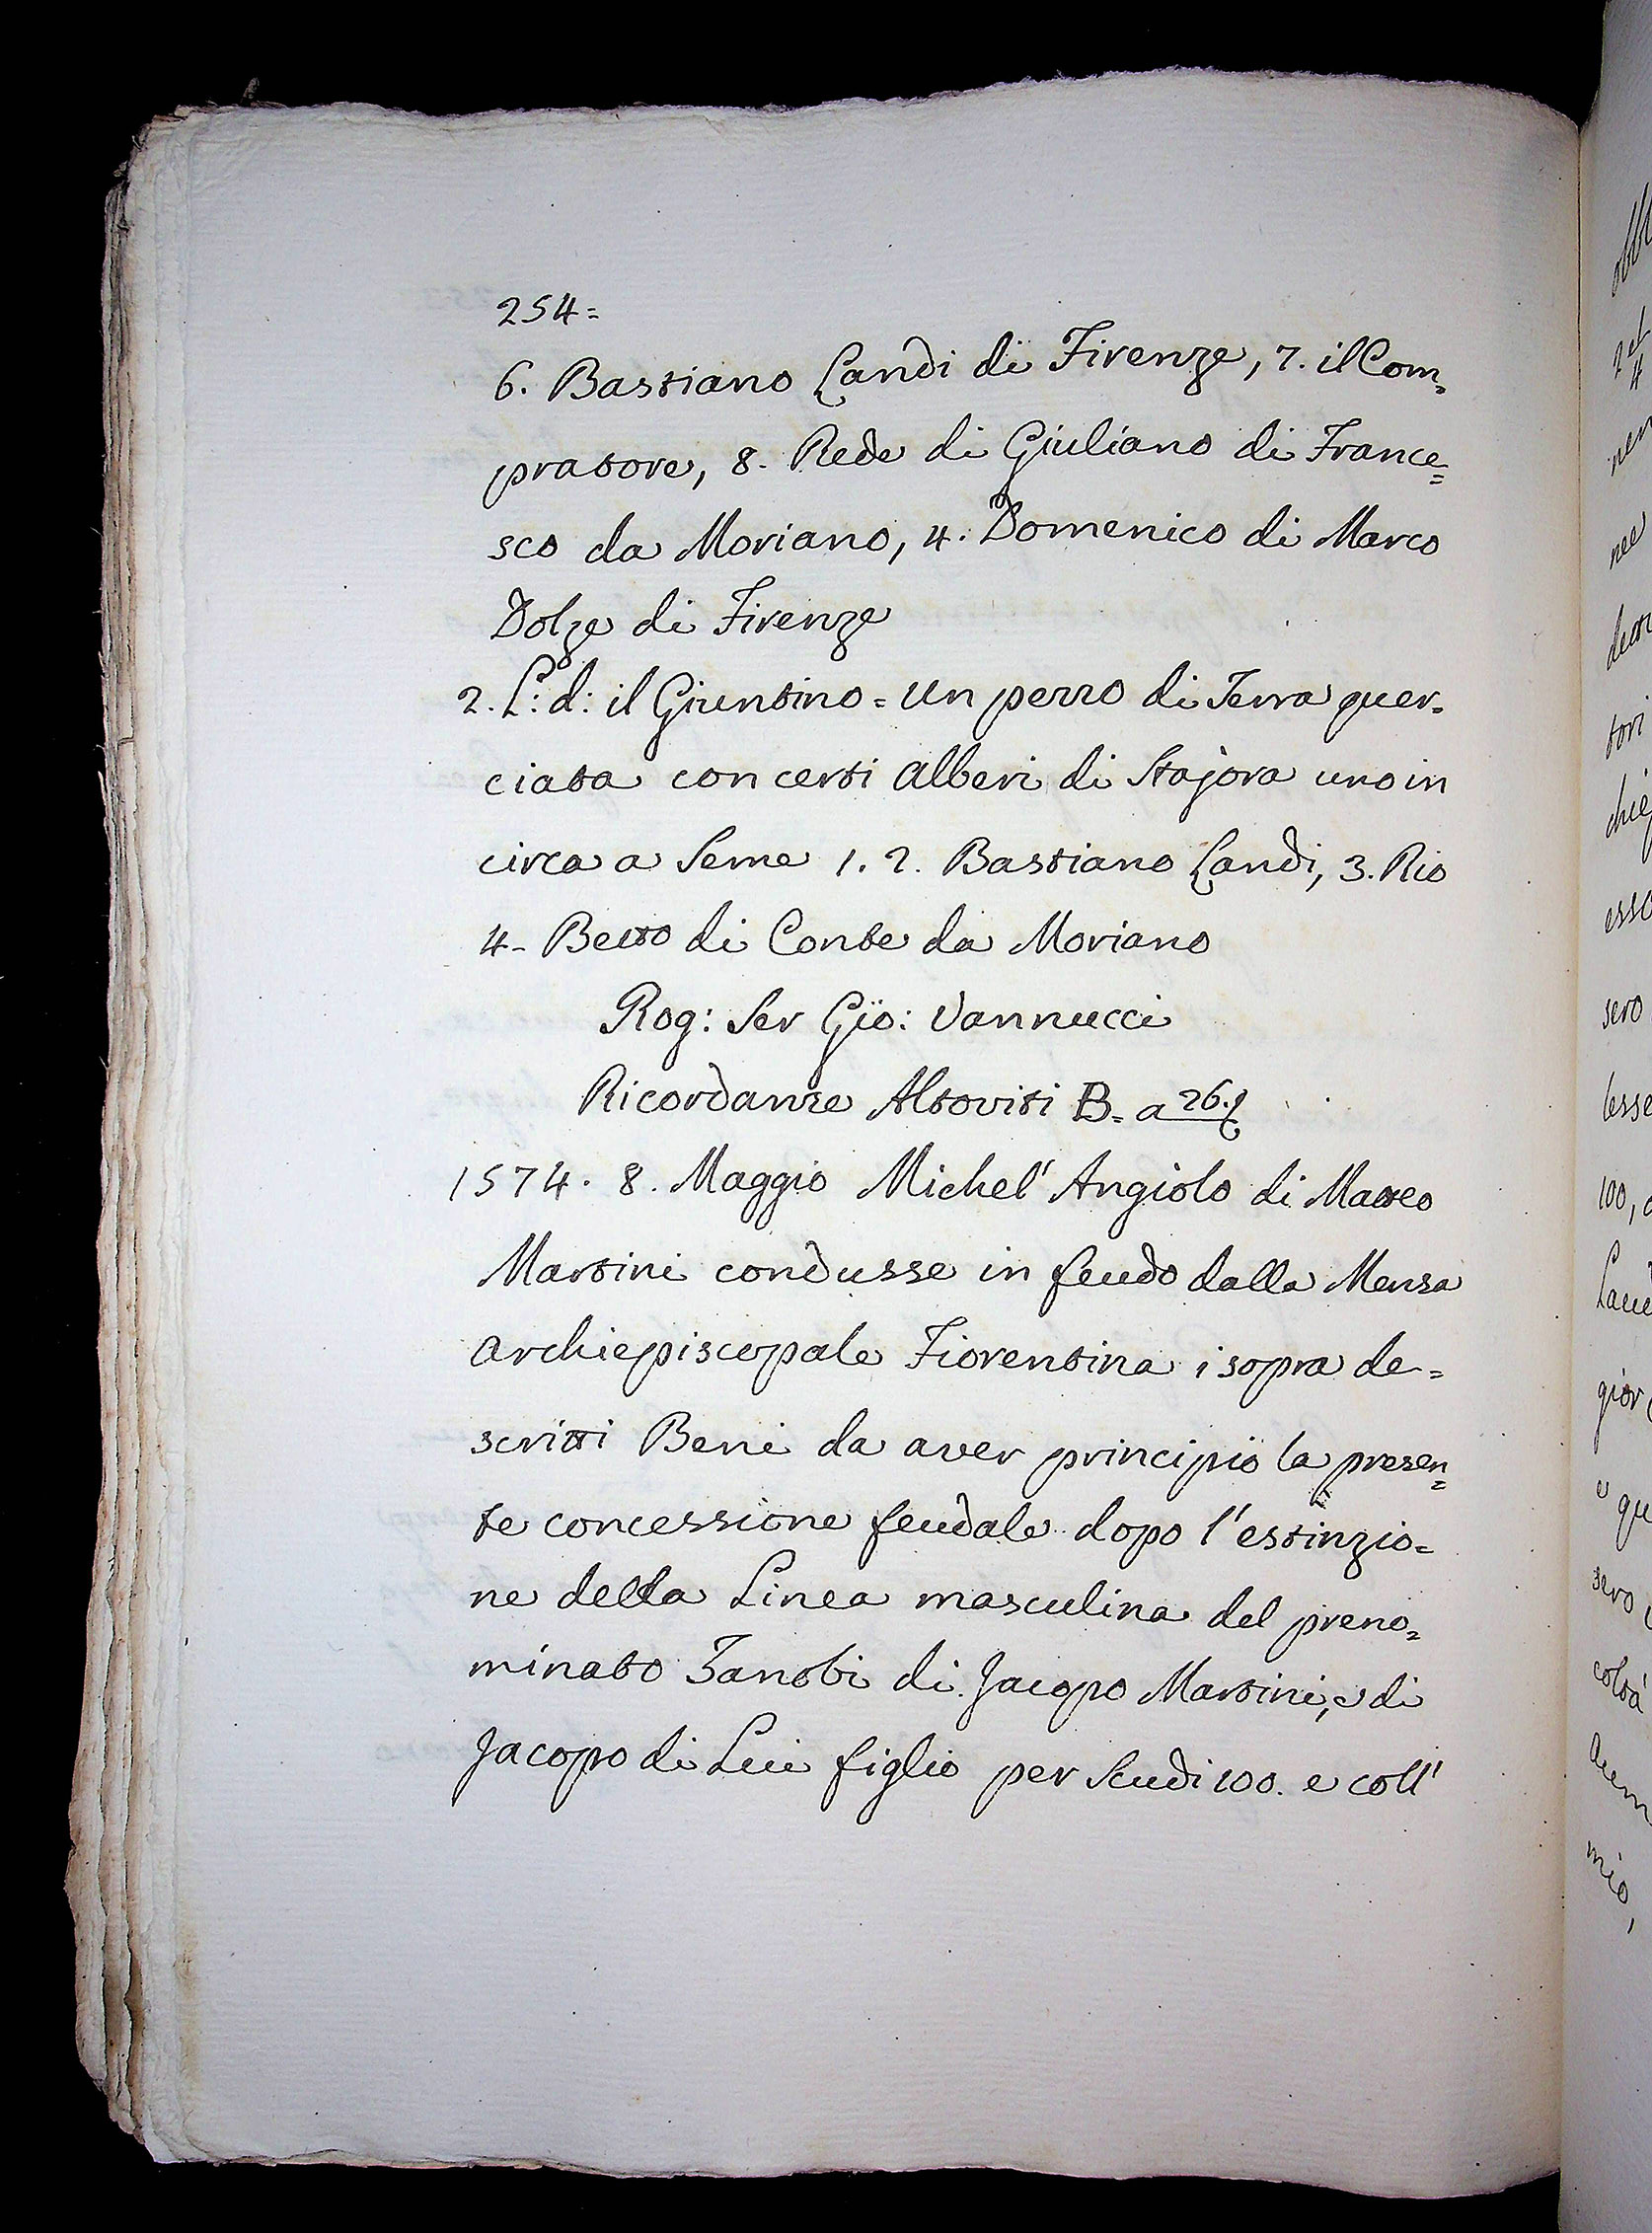 254=
6. Bastiano Landi di Firenze, 7. il Com=
pratore, 8. Rede di Giuliano di France=
sco da Moriano, 4. Domenico di Marco
Dolze di Firenze
2. L: d: il Giuntino = un pezzo di Terra quer=
ciata con certi alberi di Stajora uno in
circa a Seme 1. 2. Bastiano Landi, 3. Rio
4- Betto di Conte da Moriano
Rog: Ser Gio: Vannucci
Ricordanze Altoviti B= a 26.
1574. 8. Maggio Michel' Angiolo di Matteo
Martini condusse in feudo dalla Mensa
Archiepiscopale Fiorentina i sopra de=
scritti Beni da aver principio la presen=
te concessione feudale dopo l'estinzio=
ne della Linea masculina del preno=
minato Zanobi di Jacopo Martini, e di
Jacopo di Lui figlio per Scudi 100. e coll'